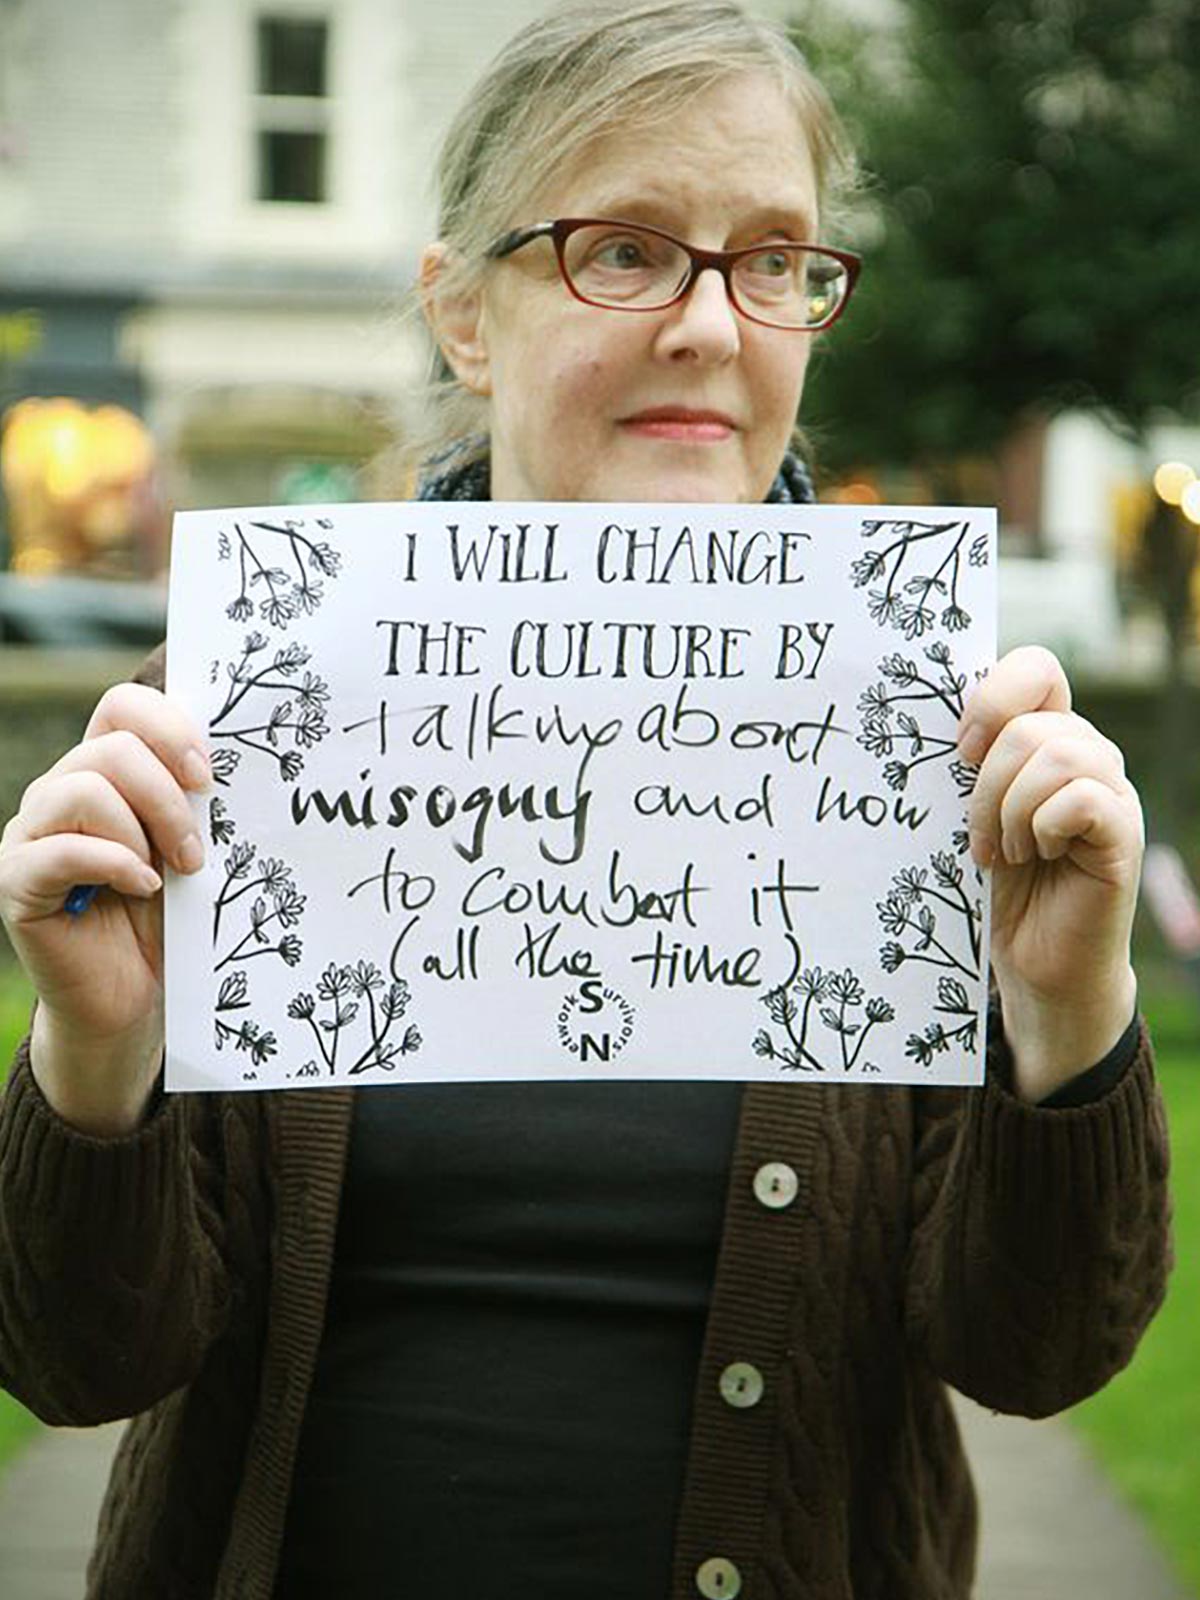 I WILL CHANGE
THE CULTURE BY
talking about
misogny and how
to combat it
(all the time)
Survivors
Network